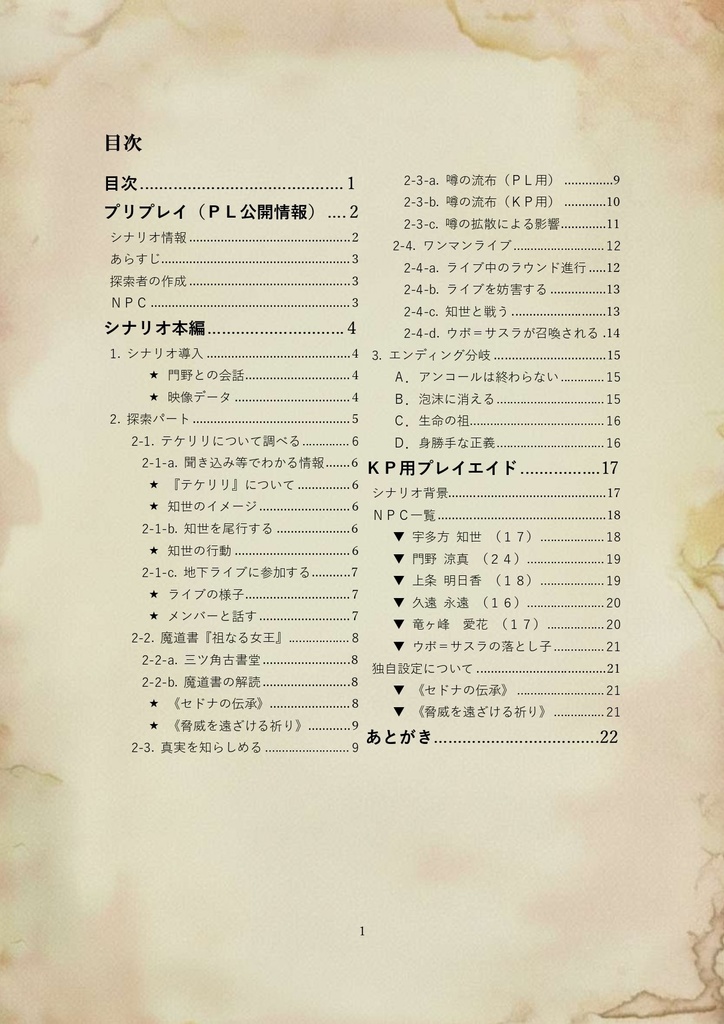 目次
目次 1
プリプレイ（ＰＬ公開情報） 2
シナリオ情報 2
あらすじ 3
探索者の作成 3
ＮＰＣ 3
シナリオ本編 4
1. シナリオ導入 4
★ 門野との会話 4
★ 映像データ 4
2. 探索パート 5
2-1. テケリリについて調べる 6
2-1-a. 聞き込み等でわかる情報 6
★ 『テケリリ』について 6
★ 知世のイメージ 6
2-1-b. 知世を尾行する 6
★ 知世の行動 6
2-1-c. 地下ライブに参加する 7
★ ライブの様子 7
★ メンバーと話す 7
2-2. 魔道書『祖なる女王』 8
2-2-a. 三ツ角古書堂 8
2-2-b. 魔道書の解読 8
★ 《セドナの伝承》 8
★ 《脅威を遠ざける祈り》 9
2-3. 真実を知らしめる 9
2-3-a. 噂の流布（ＰＬ用） 9
2-3-b. 噂の流布（ＫＰ用） 10
2-3-c. 噂の拡散による影響 11
2-4. ワンマンライブ 12
2-4-a. ライブ中のラウンド進行 12
2-4-b. ライブを妨害する 13
2-4-c. 知世と戦う 13
2-4-d. ウボ＝サスラが召喚される 14
3. エンディング分岐 15
Ａ．アンコールは終わらない 15
Ｂ．泡沫に消える 15
Ｃ．生命の祖 16
Ｄ．身勝手な正義 16
ＫＰ用プレイエイド 17
シナリオ背景 17
ＮＰＣ一覧 18
▼ 宇多方 知世 （１７） 18
▼ 門野 涼真 （２４） 19
▼ 上条 明日香 （１８） 19
▼ 久遠 永遠 （１６） 20
▼ 竜ヶ峰 愛花 （１７） 20
▼ ウボ＝サスラの落とし子 21
独自設定について 21
▼ 《セドナの伝承》 21
▼ 《脅威を遠ざける祈り》 21
あとがき 22
1